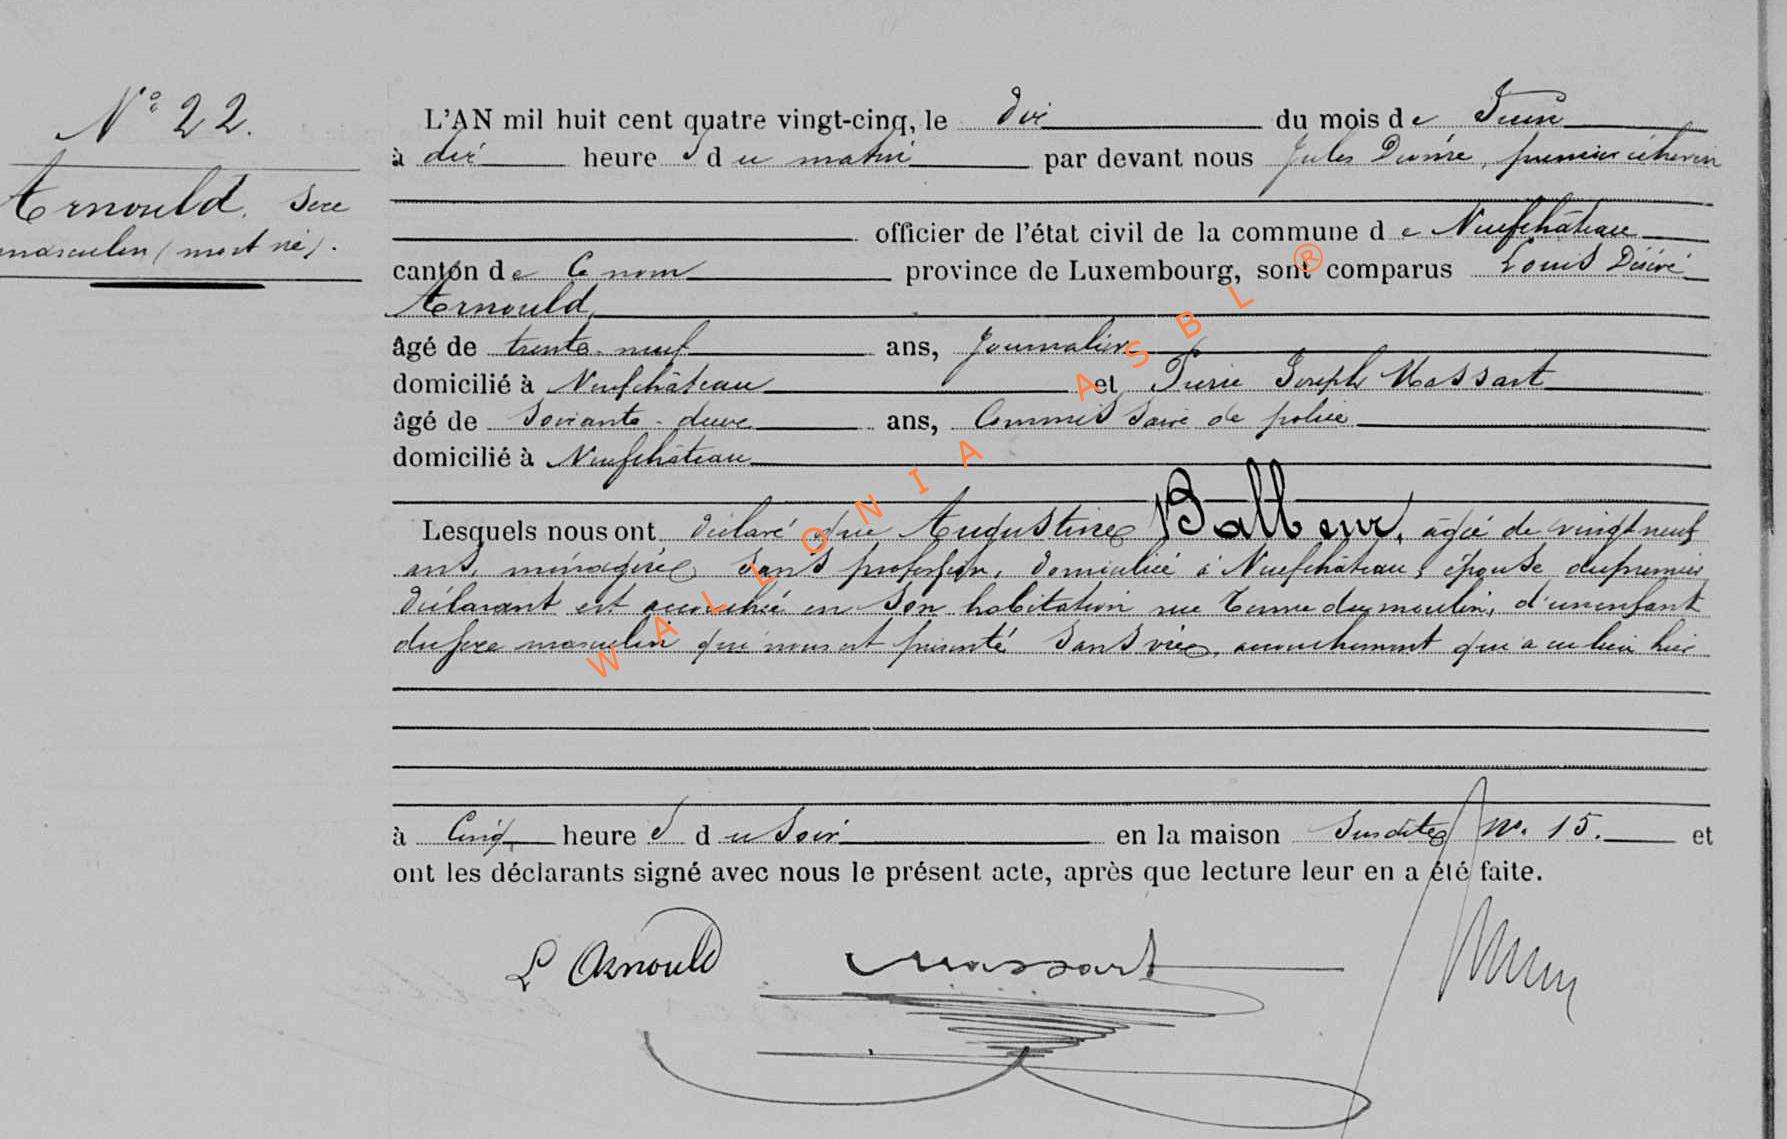 N° 22.
Arnould. Sexe
masculin (mort né).
L'AN mil huit cent quatre vingt-cinq, le dix du mois de Juin
à dix heures du matin par devant nous Jules premier échevin
officier de l'état civil de la commune de Neufchâteau
canton de Ce nom province de Luxembourg, sont comparus Louis Désiré
Arnould,
âgé de trente-neuf ans, Journalier
domicilié à Neufchâteau et Pierre Joseph Massart
âgé de soixante-deux ans, Commissaire de police
domicilié à Neufchâteau
Lesquels nous ont déclaré que Augustine Balbeur, âgée de vingt neuf
ans, ménagère sans profession, domiciliée à Neufchâteau, épouse du premier
déclarant est accouchée en son habitation rue du moulin, d'un enfant
du sexe masculin qui nous est présenté sans vie, accouchement qui a eu lieu hier
à Cinq heures du soir en la maison susdite No. 15. et
ont les déclarants signé avec nous le présent acte, après que lecture leur en a été faite.
L Arnould Massart
WALLONIA ASBL ®